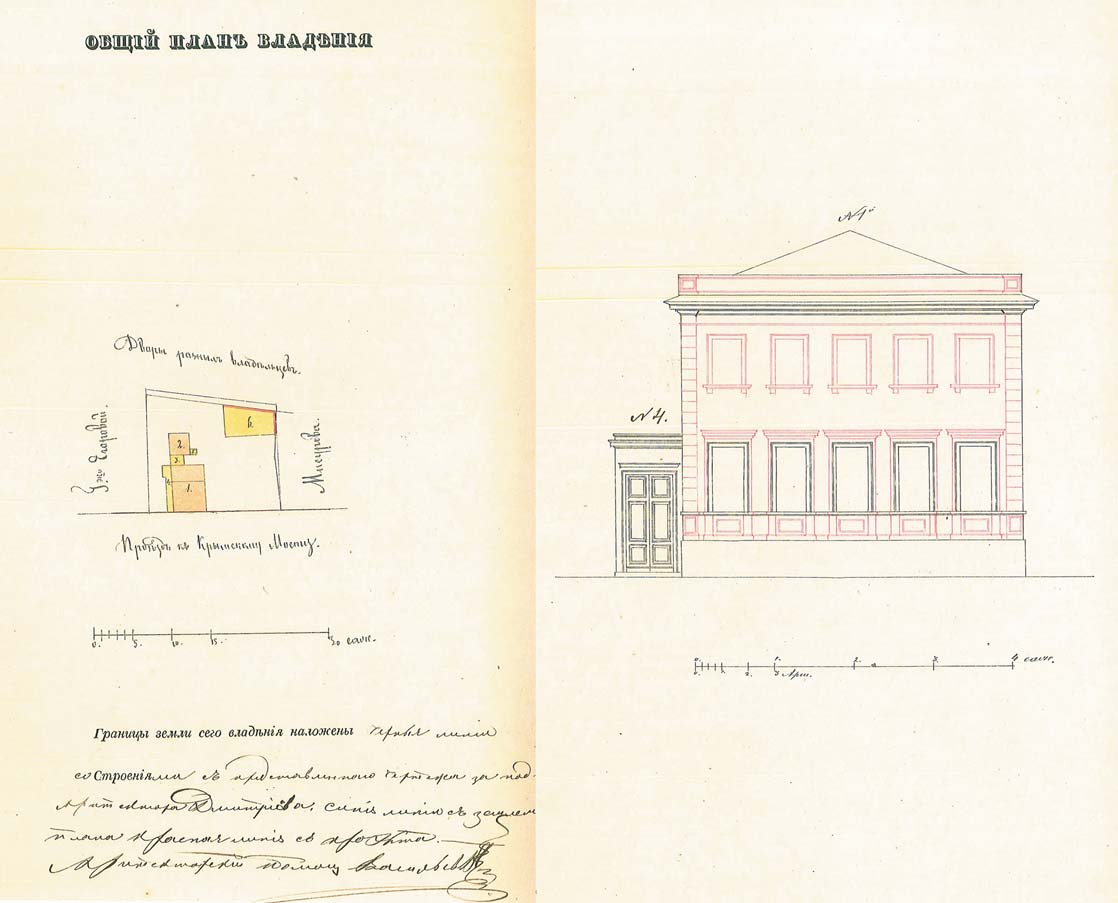 ОБЩІЙ ПЛАНЪ ВЛАДѢНІЯ
Дворы разныхъ владѣльцевъ.
Г-жи Егоровой.
Мисурева.
6.
2.
3.
4.
1.
Проѣздъ къ Крымскому Мосту.
0. 5. 10. 15. 30 саж.
Границы земли сего владѣнія наложены черныя линіи
со Строеніями съ представленнаго чертежа за под.
Архитектора Дмитріева. синія линіи съ
плана красныя линіи съ проэкта.
Архитекторскій помощ Васильевъ
N 1й
N 4.
0. 1. 2. 3. 4 саж.
0. 1. 2. 3 Арш.